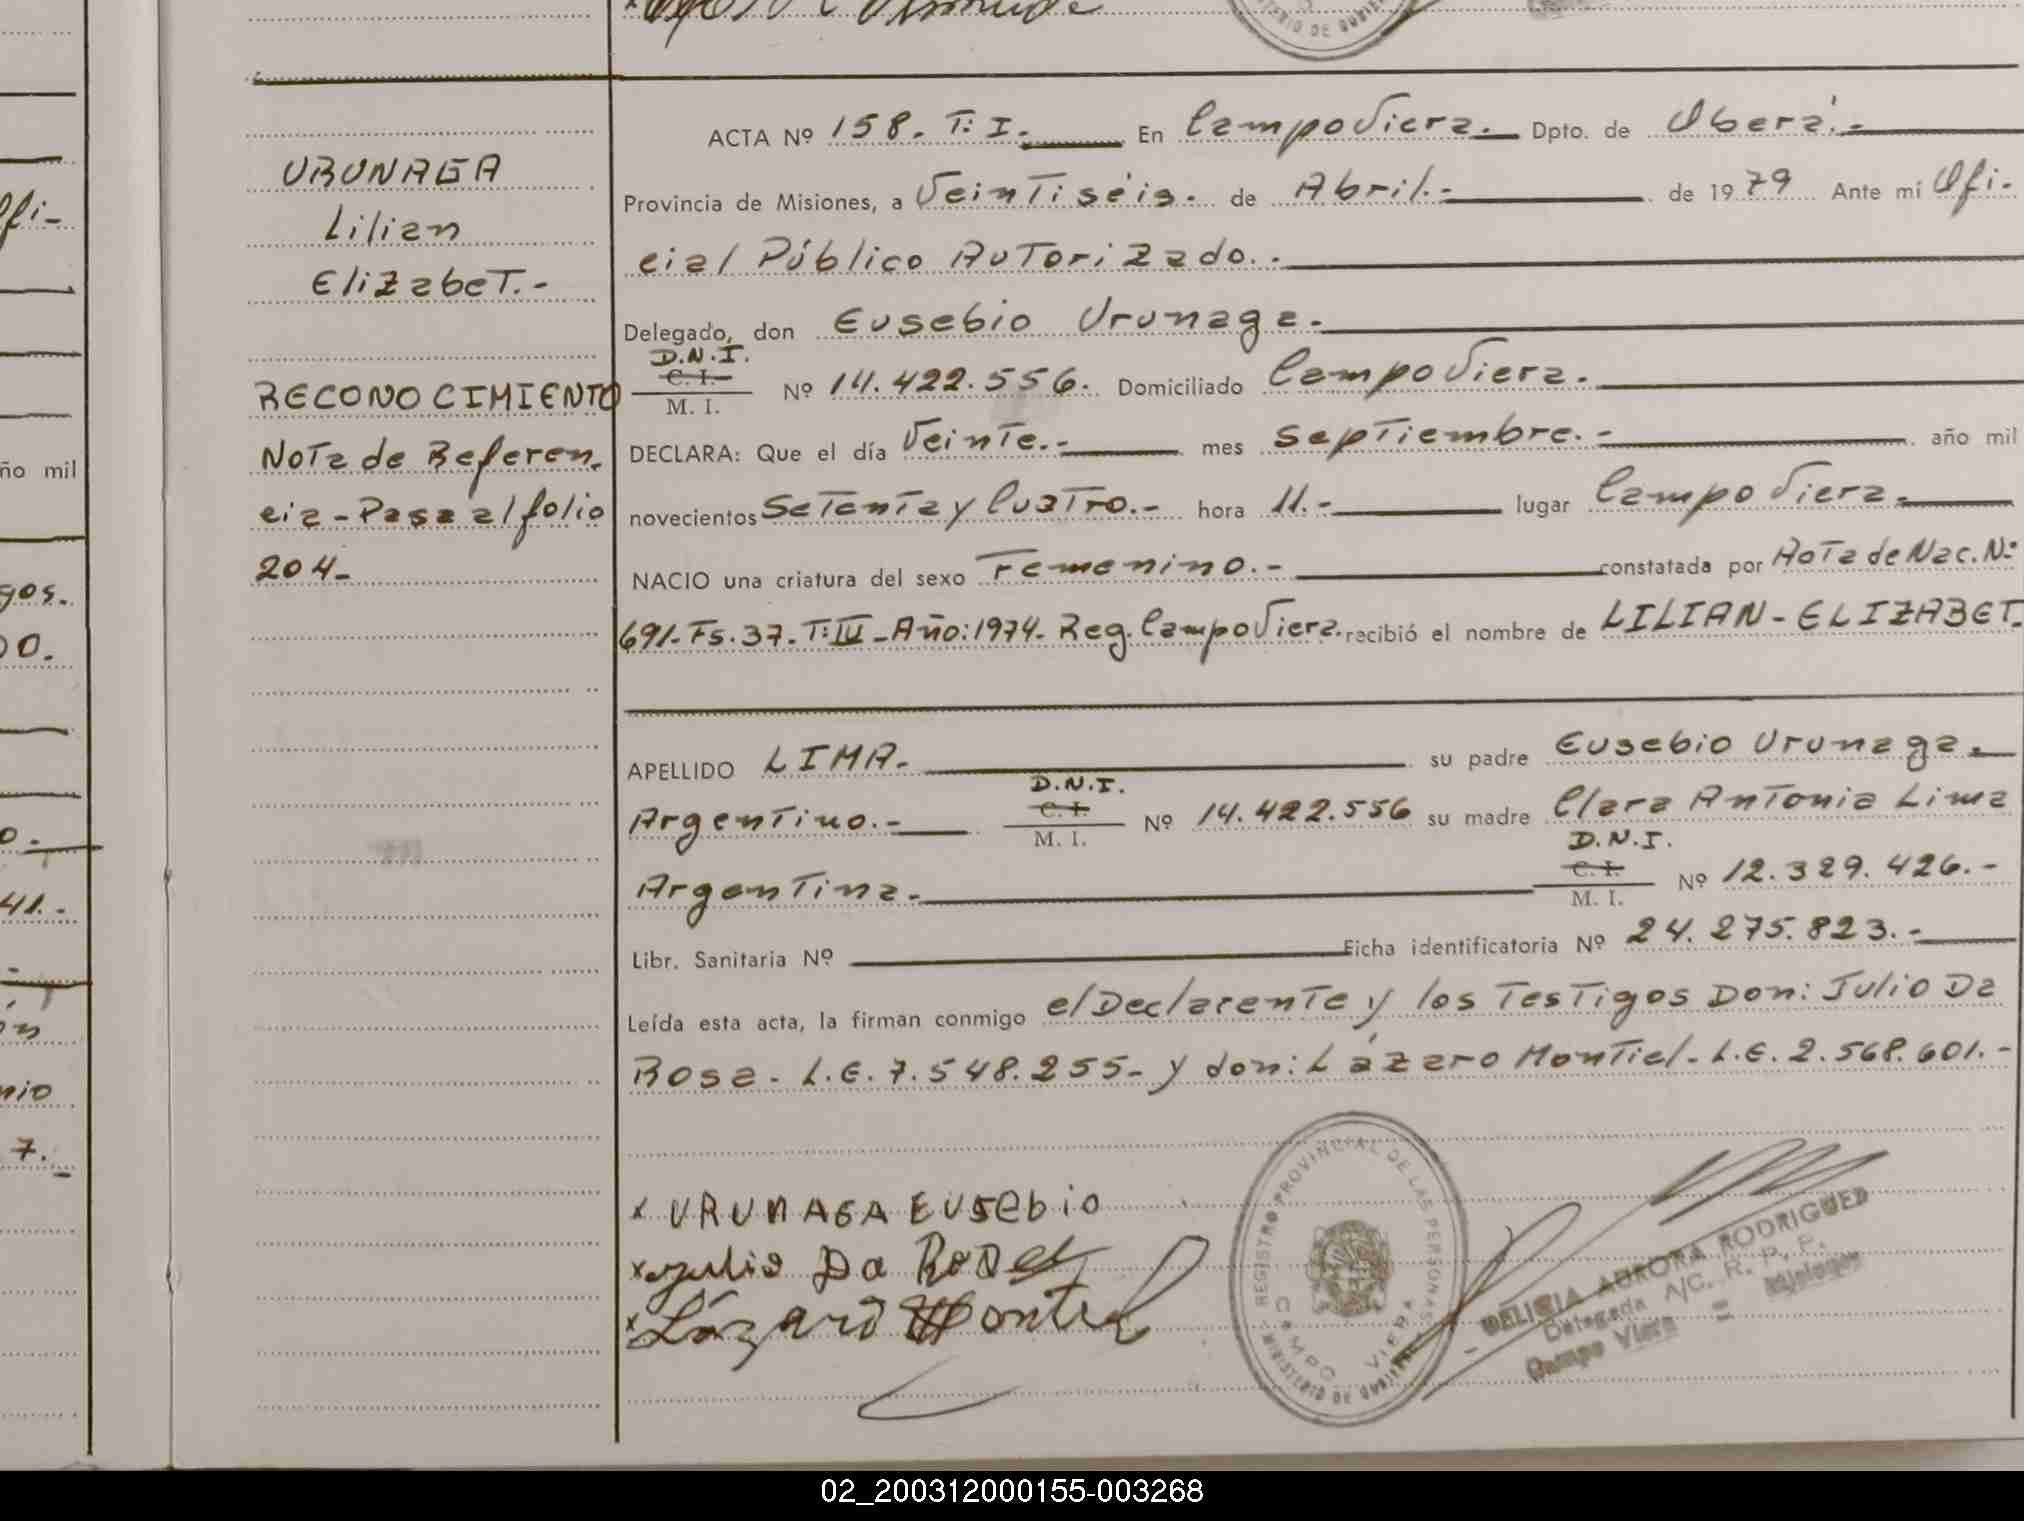 URUNAGA
Lilian
Elizabet.-
RECONOCIMIENTO
Nota de Referen.
cia - Pasa al folio
204-
ACTA Nº 158. T: I. En Campo Viera. Dpto. de Oberá.-
Provincia de Misiones, a Veintiséis. de Abril.- de 1979 Ante mí Ofi-
cial Público Autorizado.-
Delegado, don Eusebio Urunaga.
D.N.I.
C. I.
M. I.
Nº 14.422.556. Domiciliado Campo Viera.
DECLARA: Que el día Veinte.- mes Septiembre.- año mil
novecientos Setenta y Cuatro.- hora 11.- lugar Campo Viera.
NACIO una criatura del sexo Femenino.- constatada por Acta de Nac. Nº
691- Fs. 37. T: III - Año: 1974- Reg. Campo Viera. recibió el nombre de LILIAN - ELIZABET.
APELLIDO LIMA. su padre Eusebio Urunaga.
Argentino.- D.N.I. C. I. M. I. Nº 14.422.556 su madre Clara Antonia Lima
Argentina. D.N.I. C. I. M. I. Nº 12.329.426.-
Libr. Sanitaria Nº Ficha identificatoria Nº 24.275.823.-
Leída esta acta, la firman conmigo el Declarante y los Testigos Don: Julio Da
Rosa - L.E. 7.548.255- y don: Lázaro Montiel - L.E. 2.568.601.-
x URUNAGA EUSebio
x Julio Da Rosa
x Lázaro Montiel
REGISTRO PROVINCIAL DE LAS PERSONAS
MINISTERIO DE GOBIERNO
CAMPO VIERA
DELICIA AURORA RODRIGUES
Delegada A/C. R. P. P.
Campo Viera = Misiones
ofi-
ño mil
gos.
00.
41.-
nio
7.-
02_200312000155-003268